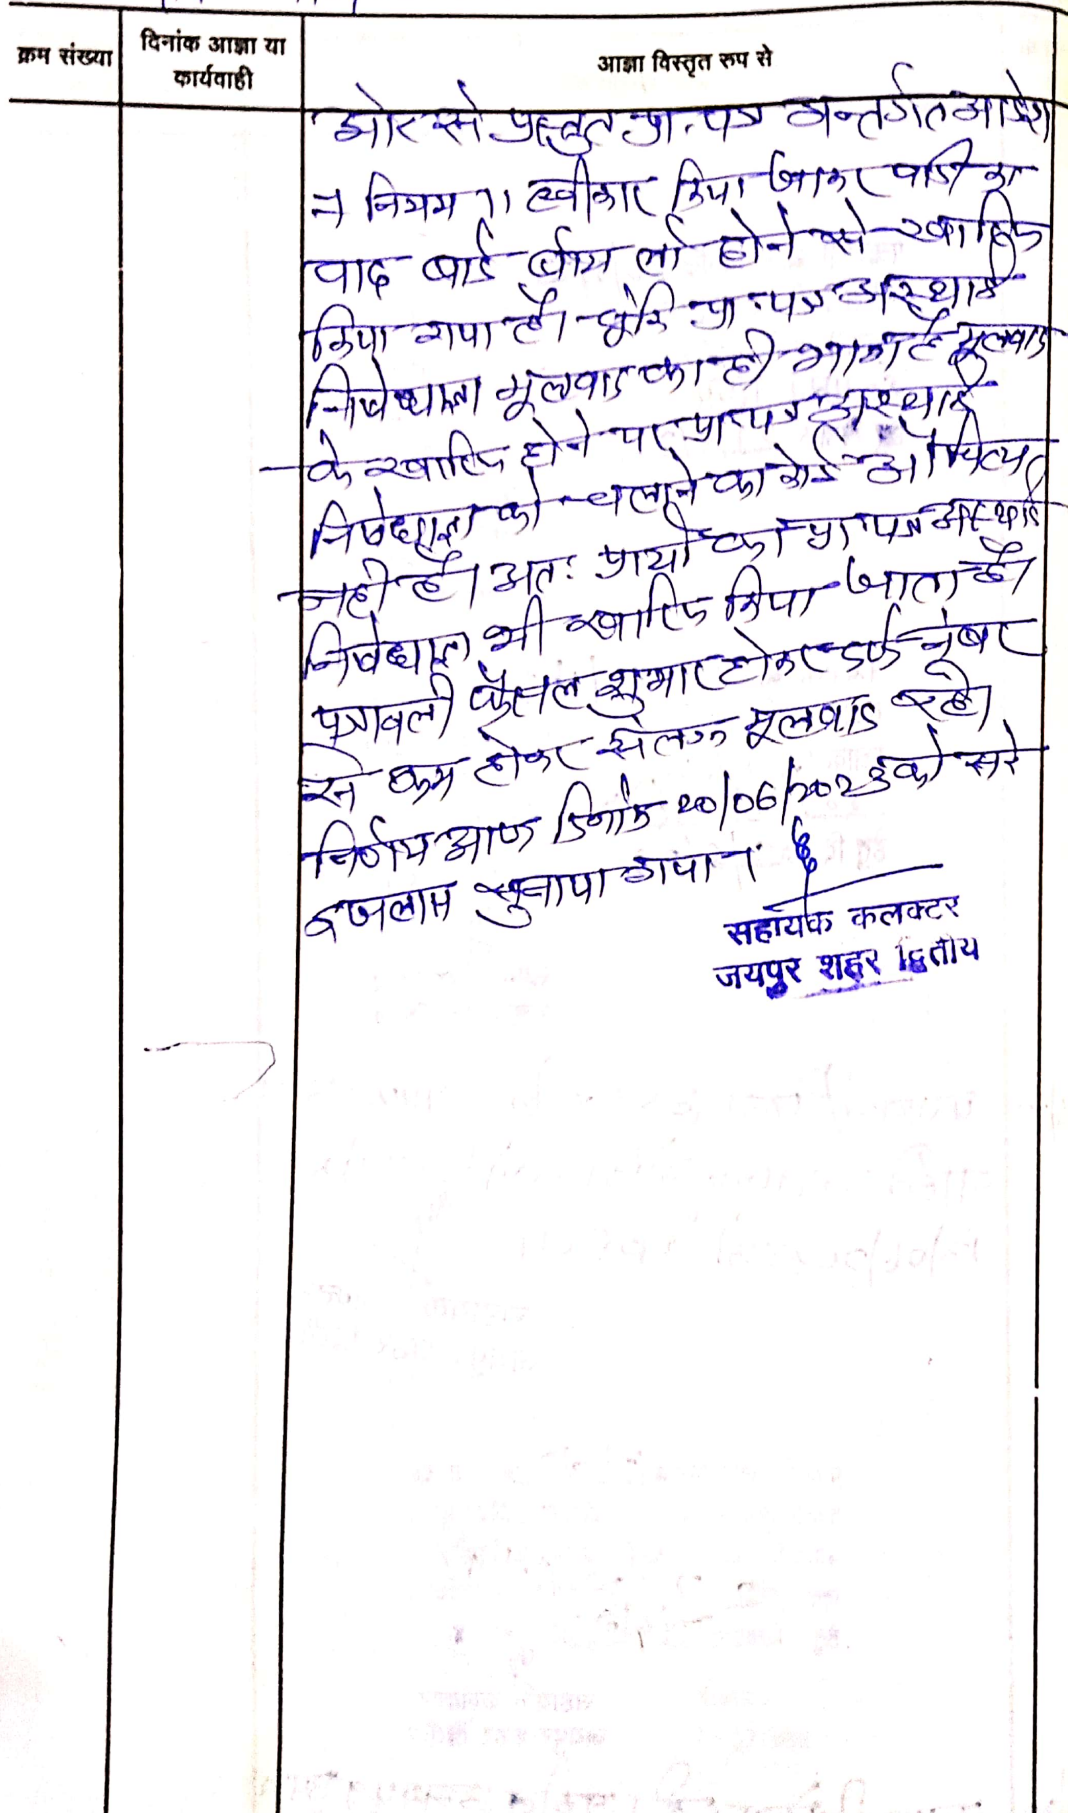 क्रम संख्या
दिनांक आज्ञा या
कार्यवाही
आज्ञा विस्तृत रुप से
ओर से प्रस्तुत प्रा.पत्र अन्तर्गत आदेश
7 नियम 11 स्वीकार किया जाकर वादी का
वाद बार्ड बॉय लॉ होने से खारिज
किया गया है। चूंकि प्रा.पत्र अस्थाई
निषेधाज्ञा मूलवाद का ही भाग है मूलवाद
के खारिज होने पर प्रा.पत्र अस्थाई
निषेधाज्ञा को चलाने का कोई औचित्य
नही है। अतः प्रार्थी का प्रा.पत्र अस्थाई
निषेधाज्ञा भी खारिज किया जाता है।
पत्रावली फैसल शुमार होकर दर्ज नंबर
से कम होकर संलग्न मूलवाद रहे।
निर्णय आज दिनांक 20/06/2023 को सरे
इजलास सुनाया गया।
सहायक कलक्टर
जयपुर शहर द्वितीय